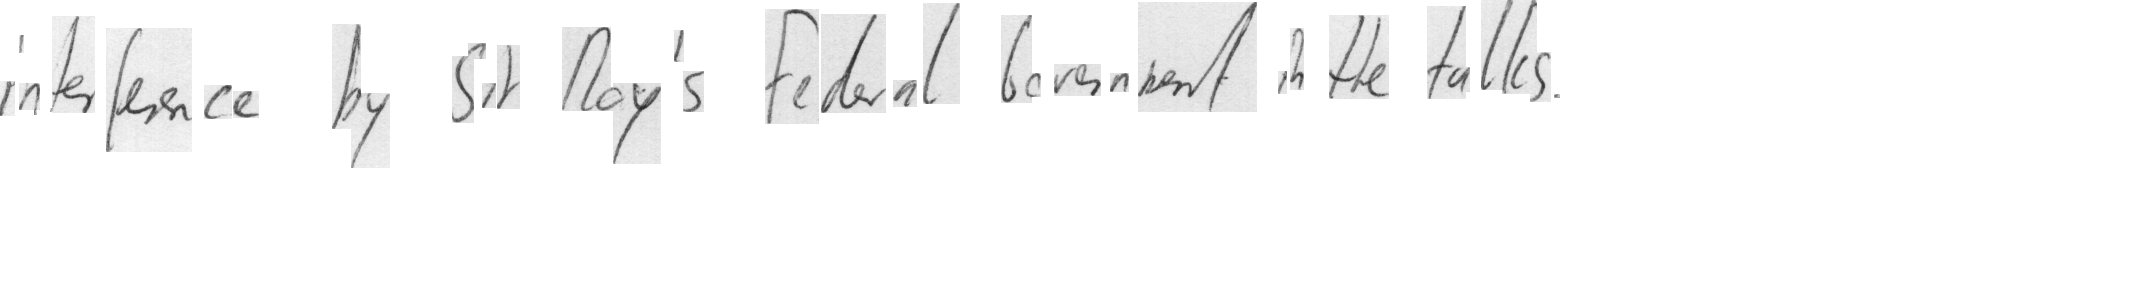 interference by Sir Roy's Federal Government in the talks.